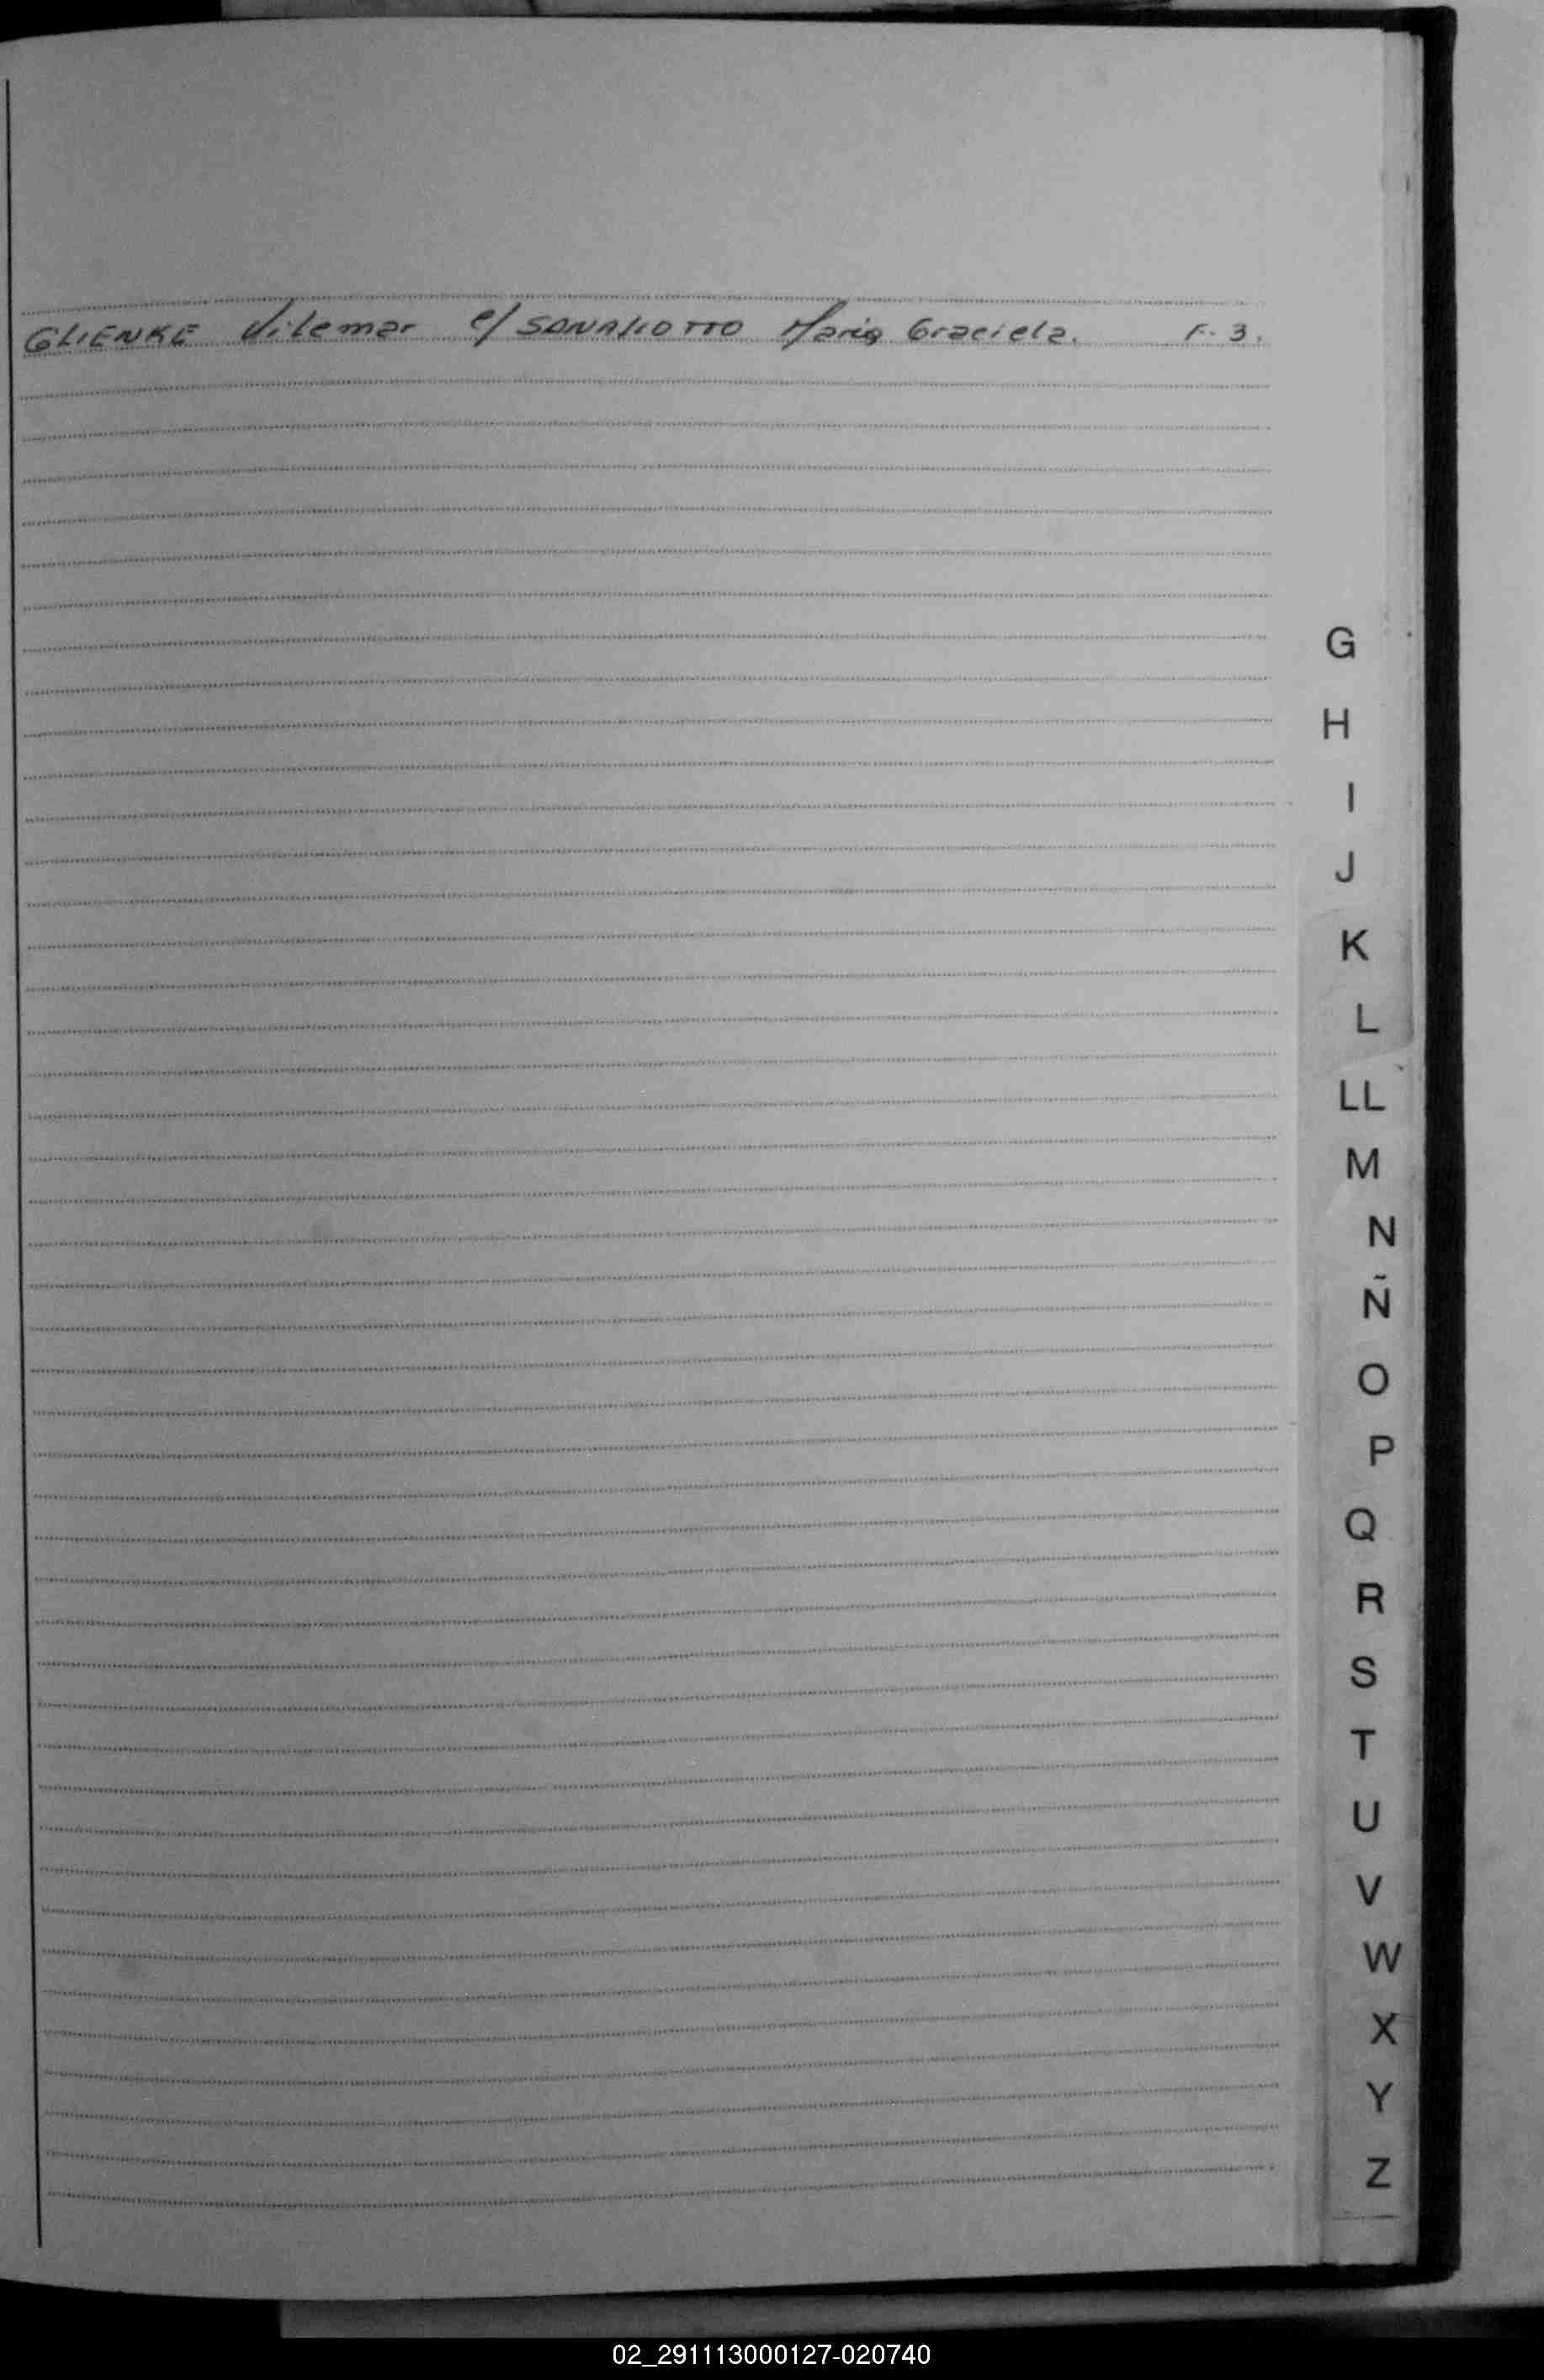 GLIENKE Vilemar c/ SANALIOTTO Maria Graciela. F-3.
G
H
I
J
K
L
LL
M
N
Ñ
O
P
Q
R
S
T
U
V
W
X
Y
Z
02_291113000127-020740